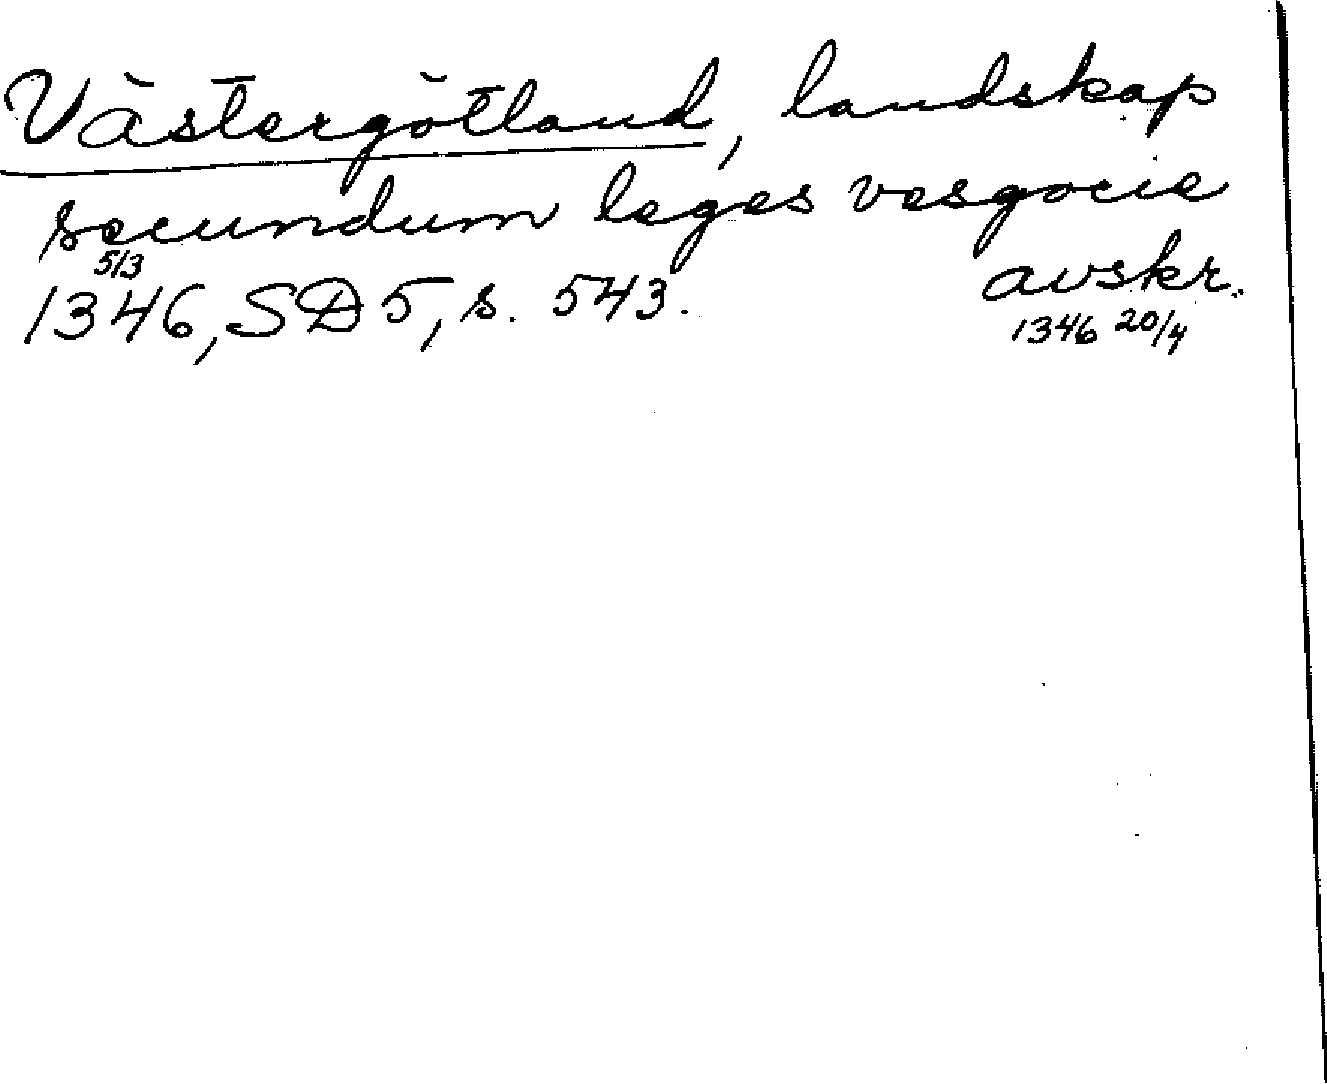 Västergötland, landskap
secundum leges vesgocie
5/3
1346, SD5, s. 543.
avskr.
1346 20/4